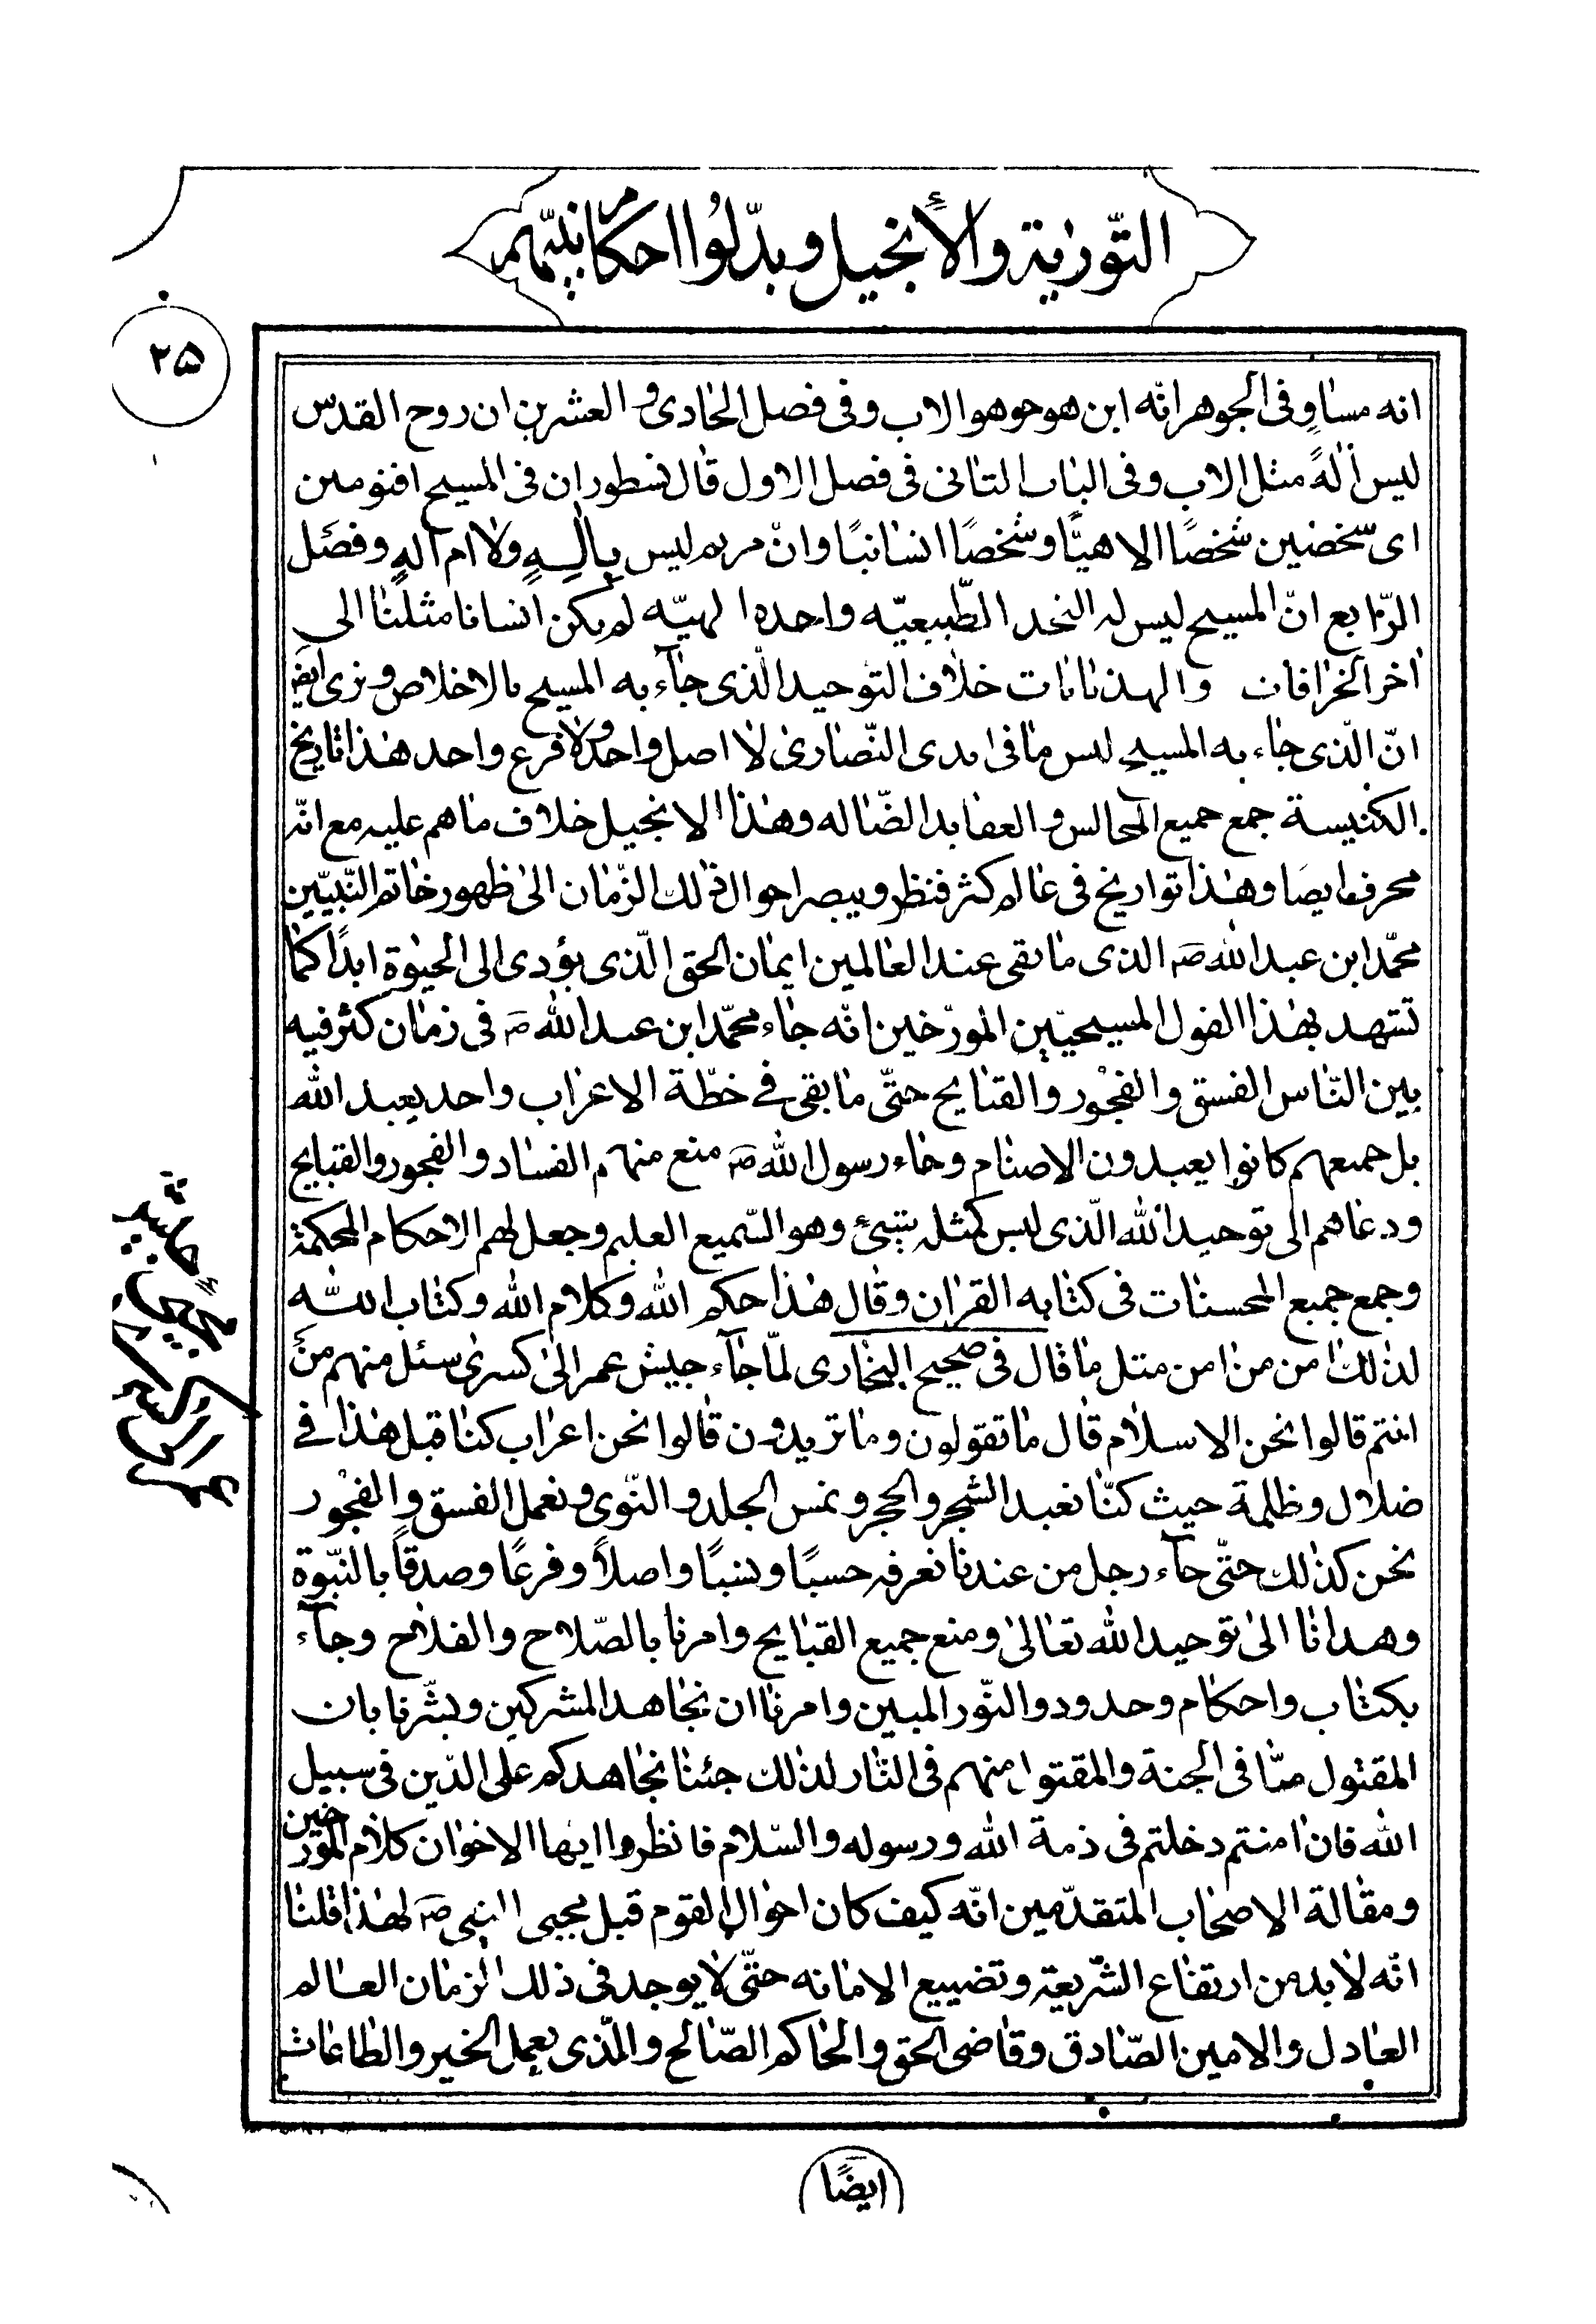 التّورٰية والأنجيل وبدّلوا احكام نبيّهم
٢۵
انه مساوٍ فى الجوهر انّه ابن هو حو هو الاب وفى فصل الحٰادى و العشرين ان روح القدس
ليس ألهً مثل الاب وفى البٰاب الثانى فى فصل الاول قٰال نسطور ان فى المسيح اقنومين
اى سخصين شخصًا الاهيًّا وشخصًا انسٰانيًا وانّ مريم ليس بالهٍ ولا ام الهٍ وفصَل
الرّابع انّ المسيح ليس له الّنخد الطّبيعيّه واحده الهيّه لم يكن انسانا مثلنٰا الى
اخر الخرافات والهذيانات خلاف التوحيد الّذى جٰآء به المسيح بالاخلاص و نرى ايضَ
انّ الّذى جٰاء به المسيح ليس مٰا فى ايدى النّصٰارىٰ لا اصل واحد ولا فرع واحد هٰذا تاريخ
الكنيسة جمع جميع المجالس و العقايد الضّاله وهٰذا الانجيل خلاف مٰا هم عليه مع انّه
محرف ايضا وهٰذا تواريخ فى عٰالم كثر فنظر ويبصر احوال ذٰلك الزّمان الىٰ ظهور خٰاتم النّبيّين
محمّد ابن عبد اللّٰه ص الذى مٰا بقى عند العٰالمين ايمٰان الحق الّذى يؤدى الى الحيوٰة ابدًا كمٰا
تشهد بهٰذا القول المسيحيّين المورّخين انّه جٰاء محمّد ابن عبد اللّٰه ص فى زمٰان كثر فيه
بين النّاس الفسق والفجْور والقبٰايح حتّى مٰا بقى فى خطّة الاعرٰاب واحد يعبد اللّٰه
بل جميعهم كانوا يعبدون الاصنام وجٰاء رسول اللّٰه ص منع منهم الفسٰاد والفجور والقبايح
ودعٰاهم الى توحيد اللّٰه الّذى ليس كمثله شىء وهو السّميع العليم وجعل لهم الاحكام المحكمة
وجمع جميع المحسنٰات فى كتٰابه القرٰان وقٰال هٰذا حكم اللّٰه وكلام اللّٰه وكتٰاب اللّٰه
لذٰلك امن من امن مثل مٰا قٰال فى صحيح البخٰارى لمّا جٰآء جيش عمر الىٰ كسرىٰ سئل منهم منَ
انتم قالوا نحن الاسلام قٰال مٰا تقولون ومٰا تريدون قٰالوا نحن اعرٰاب كنٰا قبل هٰذا فى
ضلال وظلمة حيث كنّا نعبد الشجر والحجر و نمس الجلد و النّوى و نعمل الفسق والفجْور
نحن كذٰلك حتّى جٰآء رجل من عندنٰا نعرفه حسبًا ونسبًا واصلاً وفرعًا وصدقاً بالنبّوة
وهدانٰا الىٰ توحيد اللّٰه تعٰالىٰ ومنع جميع القبٰايح وامرنا بالصّلاح والفلاح وجٰآء
بكتٰاب واحكام وحدود والنّور المبين وامرنٰا ان نجٰاهد المشركين وبشّرنا بان
المقتول منّا فى الجنة والمقتول منهم فى النّار لذٰلك جئنٰا نجٰاهدكم على الدّين فى سبيل
اللّٰه فان امنتم دخلتم فى ذمة اللّٰه ورسوله والسّلام فانظروا ايها الاخوٰان كلام المورخين
ومقٰالة الاصحٰاب المتقدّمين انّه كيف كان احوٰال القوم قبل مجيى النبى ص لهٰذا قلنٰا
انّه لابد من ارتفٰاع الشّريعة وتضييع الامٰانه حتّى لا يوجد فى ذلك الزمٰان العٰالم
العٰادل والامين الصّادق وقٰاضى الحق والحٰاكم الصّالح والّذى يعمل الخير والطاعات
ايضًا